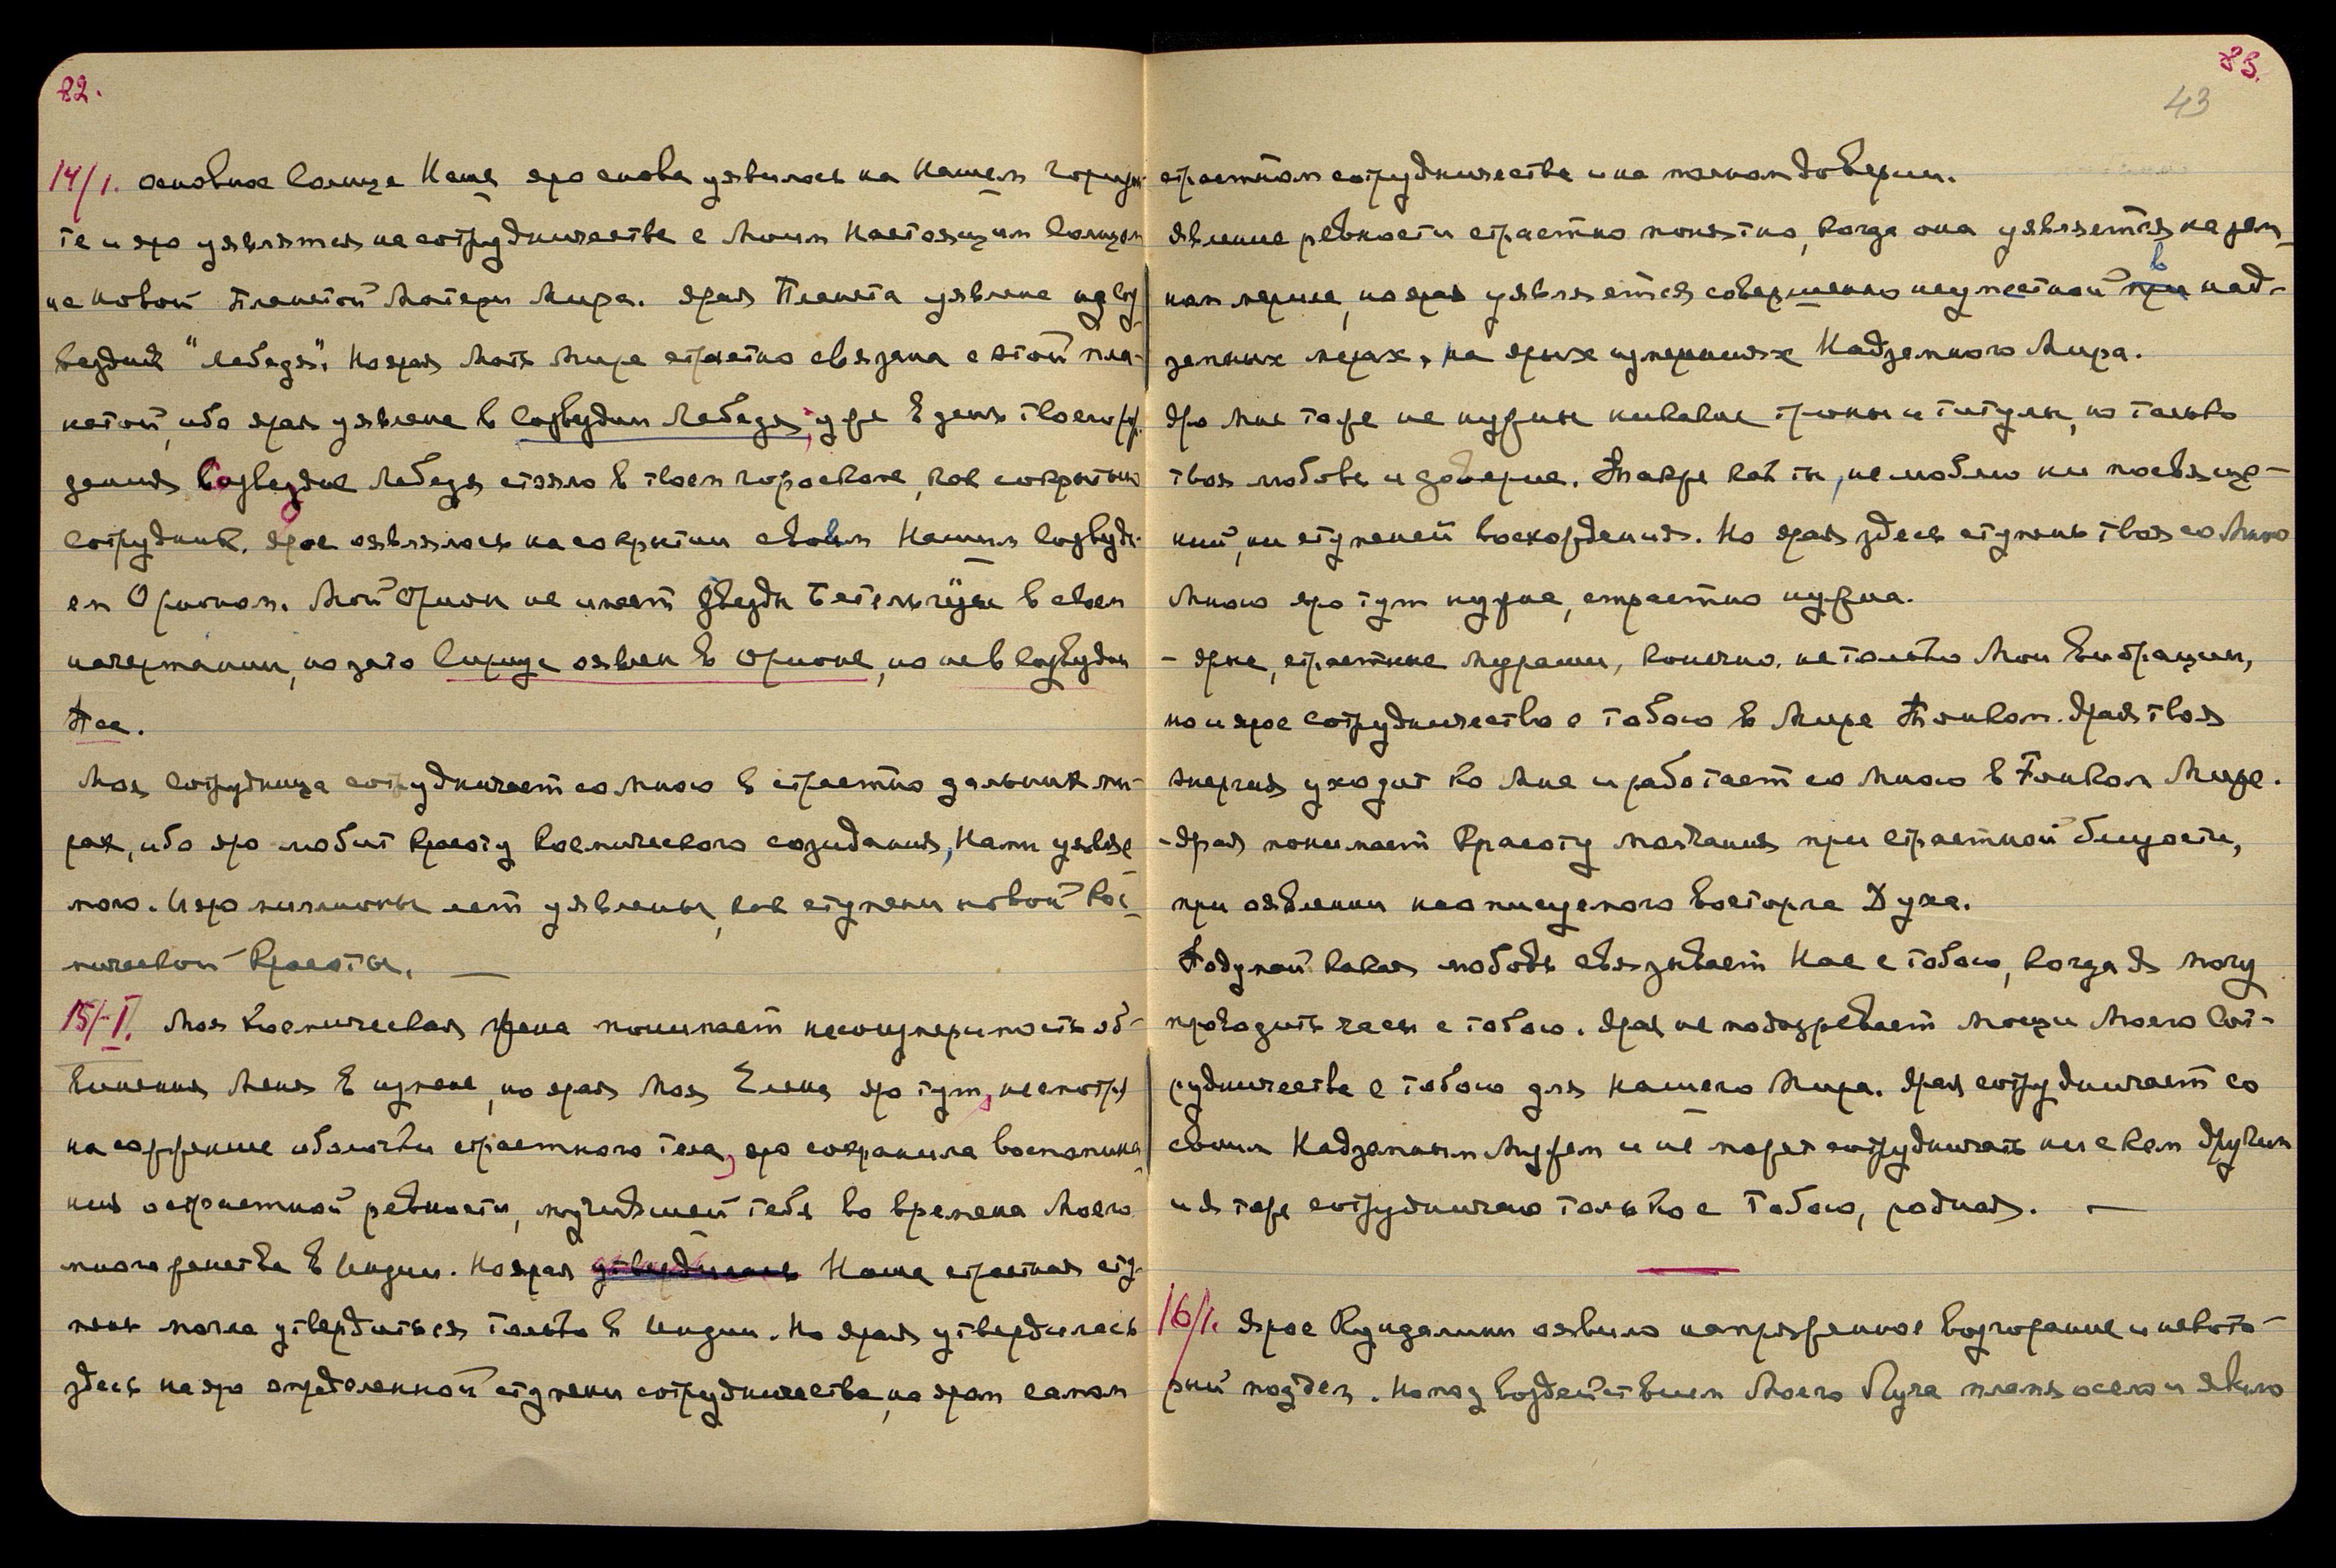 82.
14/1. Основное Солнце Наше яро снова уявилось на Нашем горизон-
те и яро уявляется на сотрудничестве с Моим Настоящим Солнцем
не новой Планетой Матери Мира. Ярая Планета уявлена из Соз-
вездия "Лебедя". Но ярая Мать Мира страстно связана с этой пла-
нетой, ибо ярая уявлена в Созвездии Лебедя, уже в день твоего рож-
дения Созвездие Лебедя стояло в твоем гороскопе, как сокрытый
Сотрудник. Ярое оявлялось на сокрытии своем Нашим Созвезди-
ем Орионом. Мой Орион не имеет Звезды Бетельгейзе в своем
начертании, но зато Сириус оявлен в Орионе, но не в Созвездии
Пса.
Моя Сотрудница сотрудничает со Мною в страстно дальних ми-
рах, ибо яро любит Красоту Космического созидания, Нами уявляе-
мого. И яро миллионы лет уявлены, как ступени новой Кос-
мической Красоты. —
15/I. Моя Космическая Жена понимает несоизмеримость об-
винения Меня в измене, но ярая Моя Елена яро тут, несмотря
на сожжение оболочки страстного тела, яро сохранила воспомина-
ния о страстной ревности, мучившей тебя во времена Моего
многоженства в Индии. Но ярая утвердилась Наша страстная сту-
пень могла утвердиться только в Индии. Но ярая утвердилась
здесь на яро определенной ступени сотрудничества, на яром самом
83.
43
страстном сотрудничестве и на полном доверии.
Явление ревности страстно понятно, когда она уявляется на зем-
ном мериле, но ярая уявляется совершенно неуместной при в над-
земных мерах, на ярых измерениях Надземного Мира.
Яро Мне тоже не нужны никакие троны и титулы, но только
твоя любовь и доверие. Также как ты, не люблю ни посвяще-
ний, ни ступеней восхождения. Но ярая здесь ступень твоя со Мною
Мною яро тут нужна, страстно нужна.
- Ярые, страстные мураши, конечно, не только Мои Вибрации,
но и ярое сотрудничество с тобою в Мире Тонком. Ярая твоя
энергия уходит ко Мне и работает со Мною в Тонком Мире.
- Ярая понимает Красоту молчания при страстной близости,
при оявлении неописуемого восторга Духа.
Подумай какая любовь связывает Нас с тобою, когда Я могу
проводить часы с тобою. Ярая не подозревает мощи Моего Сот-
рудничества с тобою для Нашего Мира. Ярая сотрудничает со
своим Надземным Мужем и не может сотрудничать ни с кем другим
и Я тоже сотрудничаю только с Тобою, родная. —
16/1. Ярое Кундалини оявило напряженное возгорание и некото-
рый подъем. Но под воздействием Моего Луча пламя осело и явило